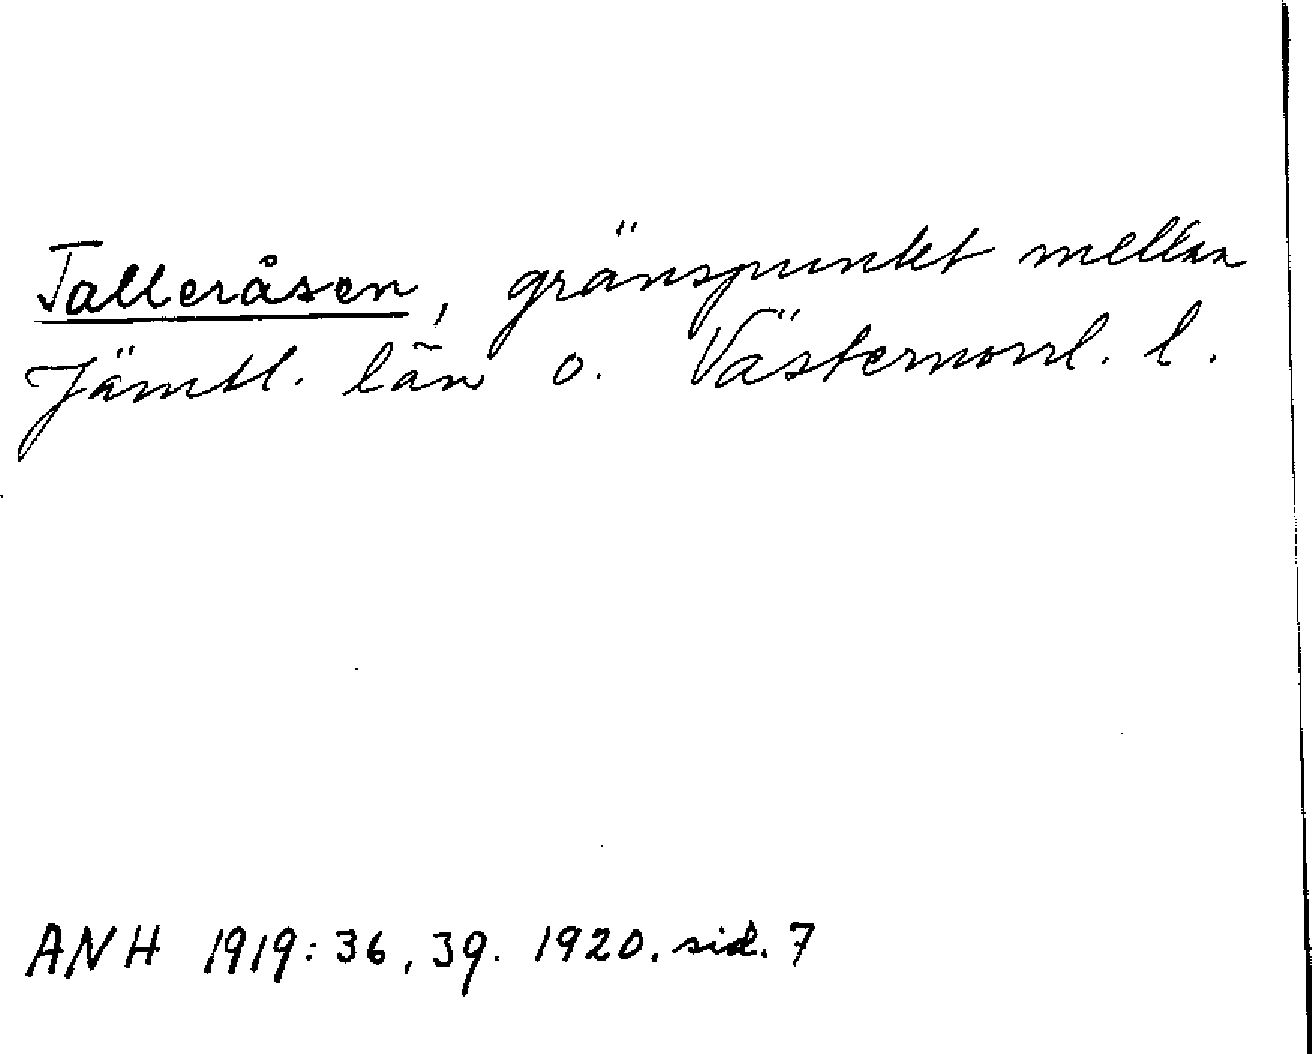 Talleråsen, gränspunkt mellan
Jämtl. län o. Västernorrl. l.
ANH 1919: 36, 39. 1920. sid. 7